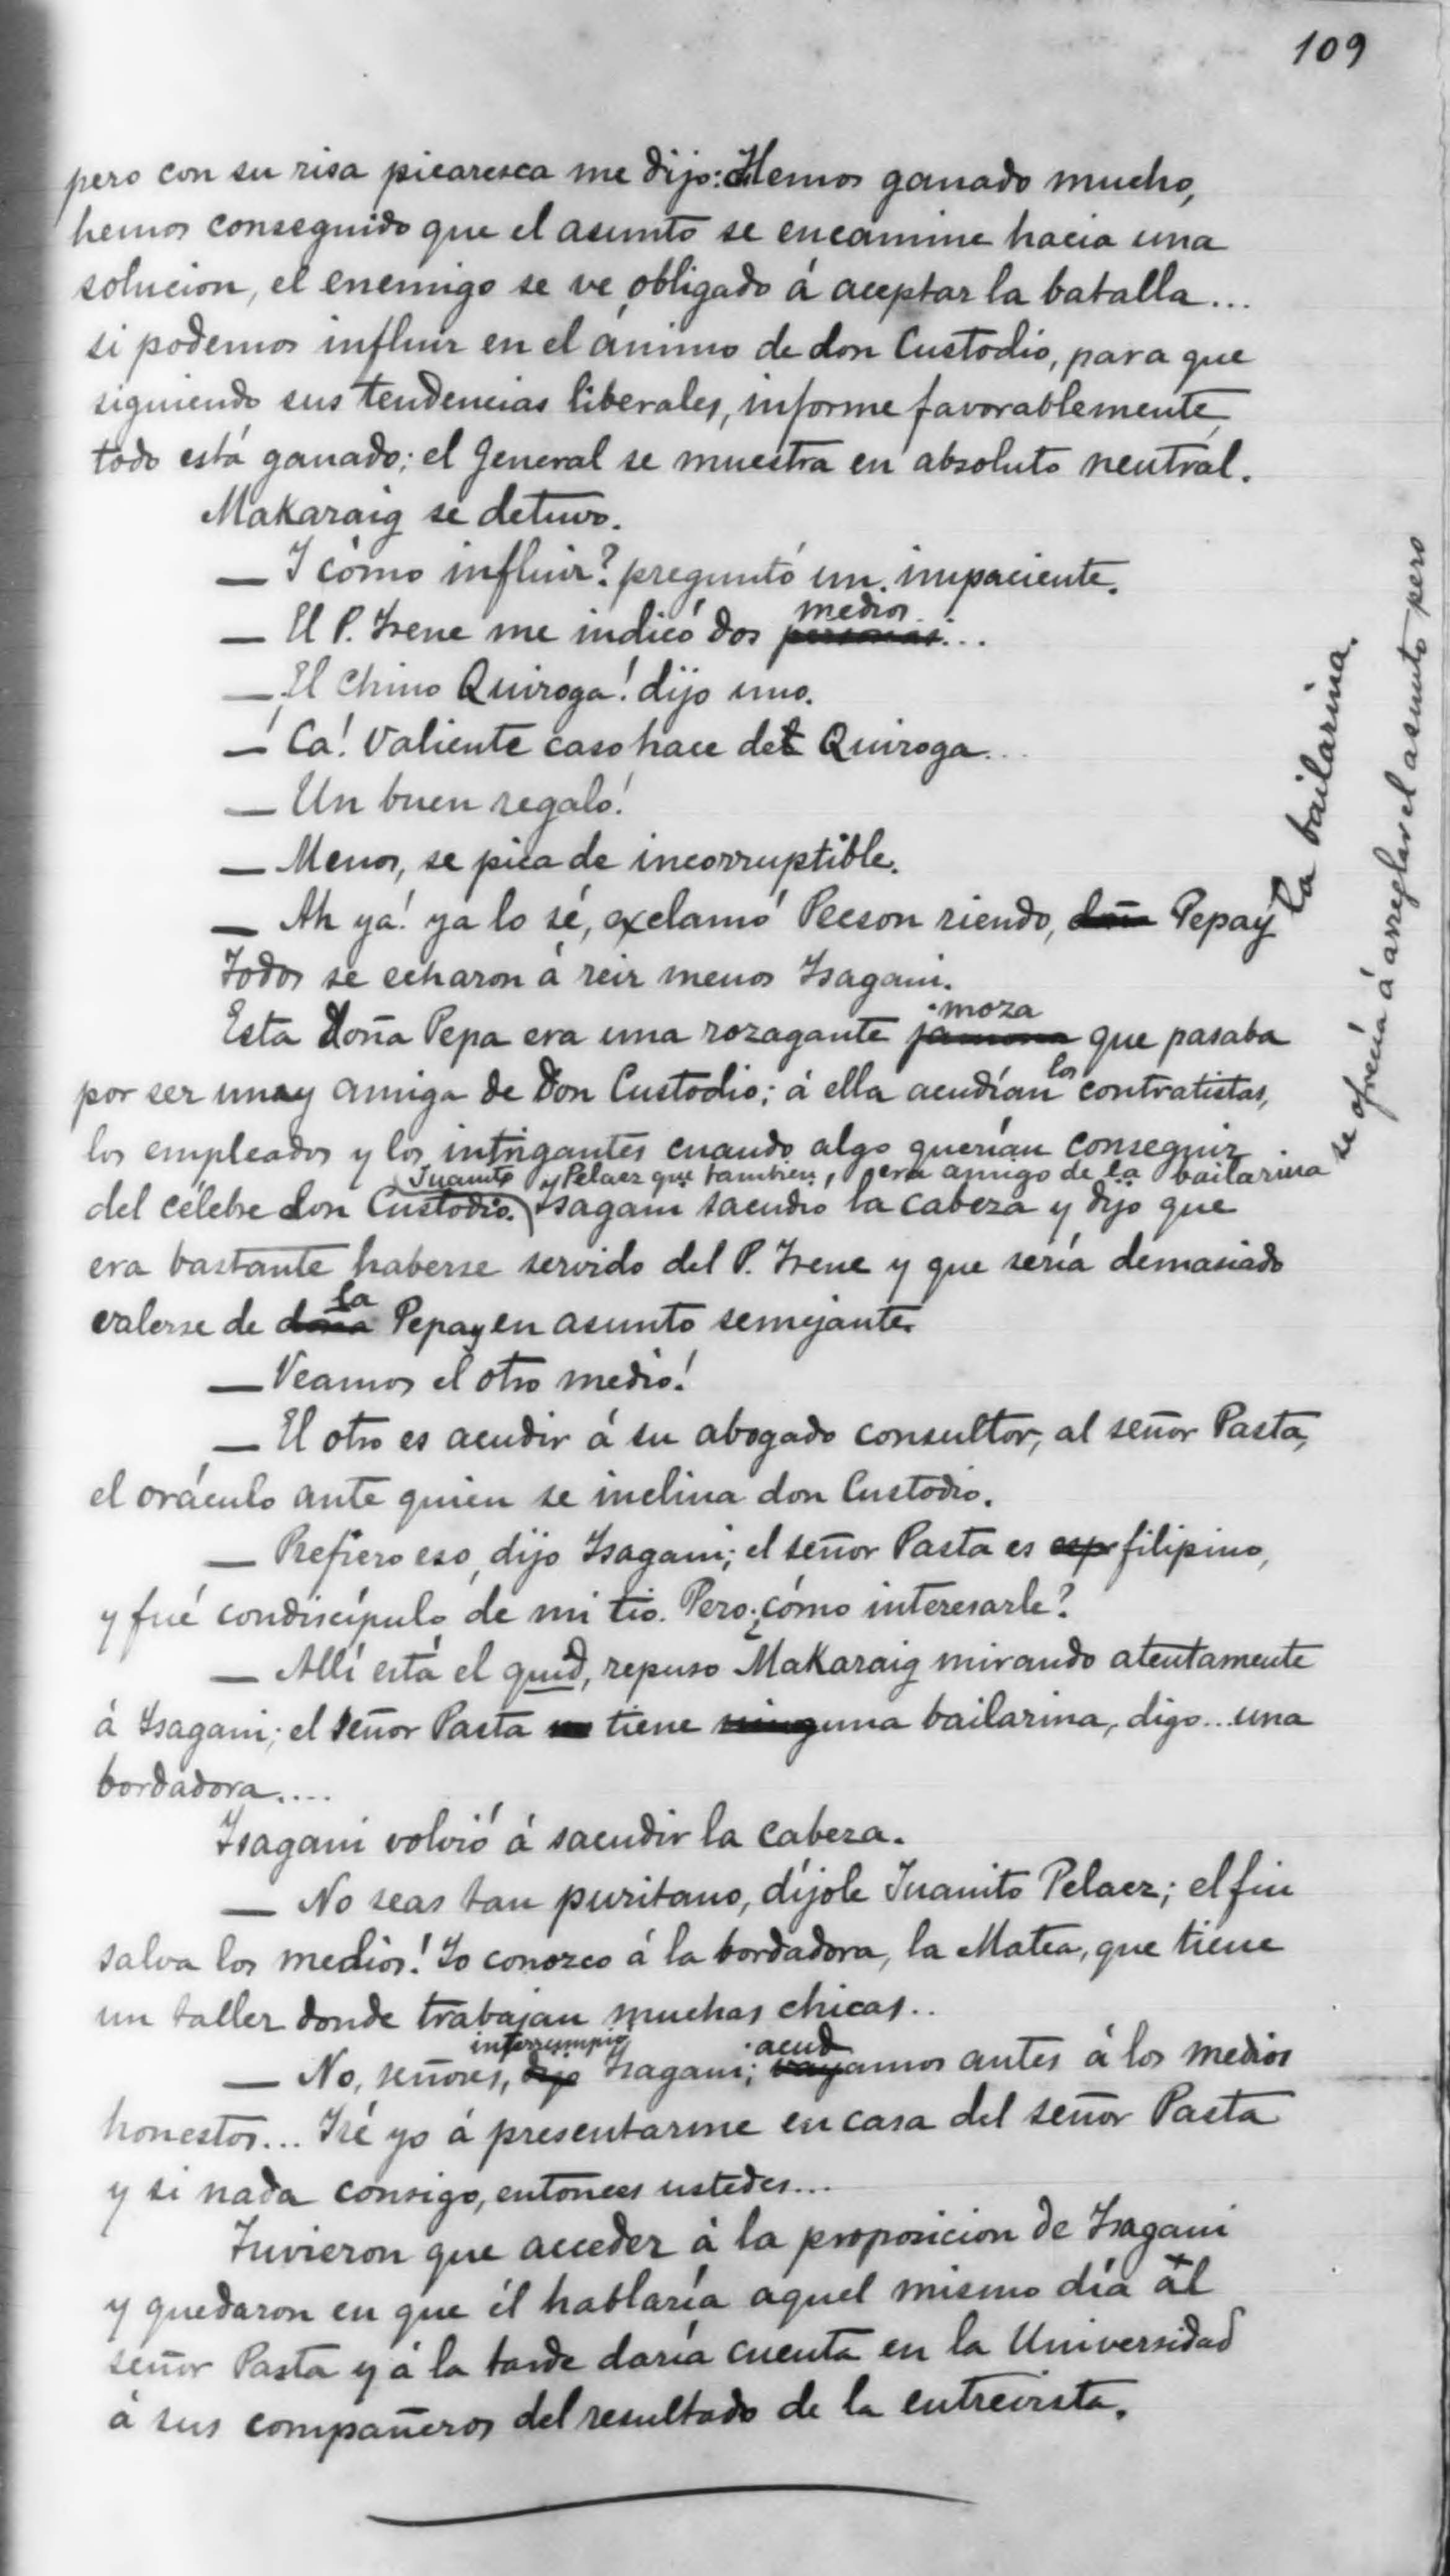 109
pero con su risa picaresca me dijo: Hemos ganado mucho,
hemos conseguido que el asunto se encamine hacia una
solucion, el enemigo se ve obligado á aceptar la batalla...
si podemos influir en el ánimo de don Custodio, para que
siguiendo sus tendencias liberales, informe favorablemente,
todo está ganado; el General se muestra en absoluto neutral.
Makaraig se detuvo.
— I cómo influir? preguntó un impaciente.
— El P. Irene me indicó dos personas...
medios
— El Chino Quiroga! dijo uno.
— Ca! Valiente caso hace del Quiroga...
— Un buen regalo!
— Menos, se pica de incorruptible.
— Ah ya! ya lo sé, exclamó Pecson riendo, doña Pepay
la bailarina.
Todos se echaron á reir menos Isagani.
Esta Doña Pepa era una rozagante jamona que pasaba
moza
por ser muy amiga de Don Custodio; á ella acudían los contratistas,
los empleados y los intrigantes cuando algo querían conseguir
del célebre don Custodio. Isagani sacudió la cabeza y dijo que
Juanito Pelaez que tambien era amigo de la bailarina
se ofrecía á arreglar el asunto pero
era bastante haberse servido del P. Irene y que sería demasiado
valerse de doña Pepay en asunto semejante.
la
— Veamos el otro medio!
— El otro es acudir á su abogado consultor, al señor Pasta,
el oráculo ante quien se inclina don Custodio.
— Prefiero eso, dijo Isagani; el señor Pasta es esp filipino,
y fué condiscípulo de mi tio. Pero ¿cómo interesarle?
— Allí está el quid, repuso Makaraig mirando atentamente
á Isagani; el señor Pasta no tiene ninguna bailarina, digo... una
bordadora....
Isagani volvió á sacudir la cabeza.
— No seas tan puritano, díjole Juanito Pelaez; el fin
salva los medios! Yo conozco á la bordadora, la Matea, que tiene
un taller donde trabajan muchas chicas..
— No, señores, dijo Isagani; vayamos antes á los medios
interrumpió acud
honestos... Iré yo á presentarme en casa del señor Pasta
y si nada consigo, entonces ustedes...
Tuvieron que acceder á la proposicion de Isagani
y quedaron en que él hablaría aquel mismo día al
señor Pasta y á la tarde daría cuenta en la Universidad
á sus compañeros del resultado de la entrevista.